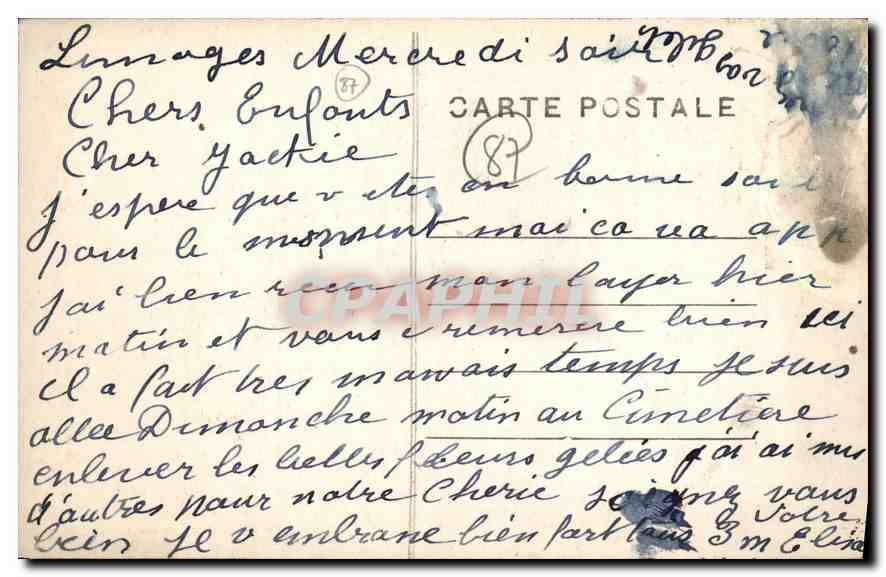 Limoges Mercredi soir
87
Chers Enfonts
CARTE POSTALE
Cher Jackie
87
j'espere que v etes en bonne
pour le moment moi ca va app
j'ai bien recu mon layer hier
matin et vous remercie bien ici
il a fait tres mauvais temps je suis
allee Dimanche matin au Cimetiere
CPAPHIL
enlever les belles fleurs gelées j'ai ai mis
d'autres pour notre Cherie soignez vous
bien je v embrane bien fort tous 3 Votre
m Elisa